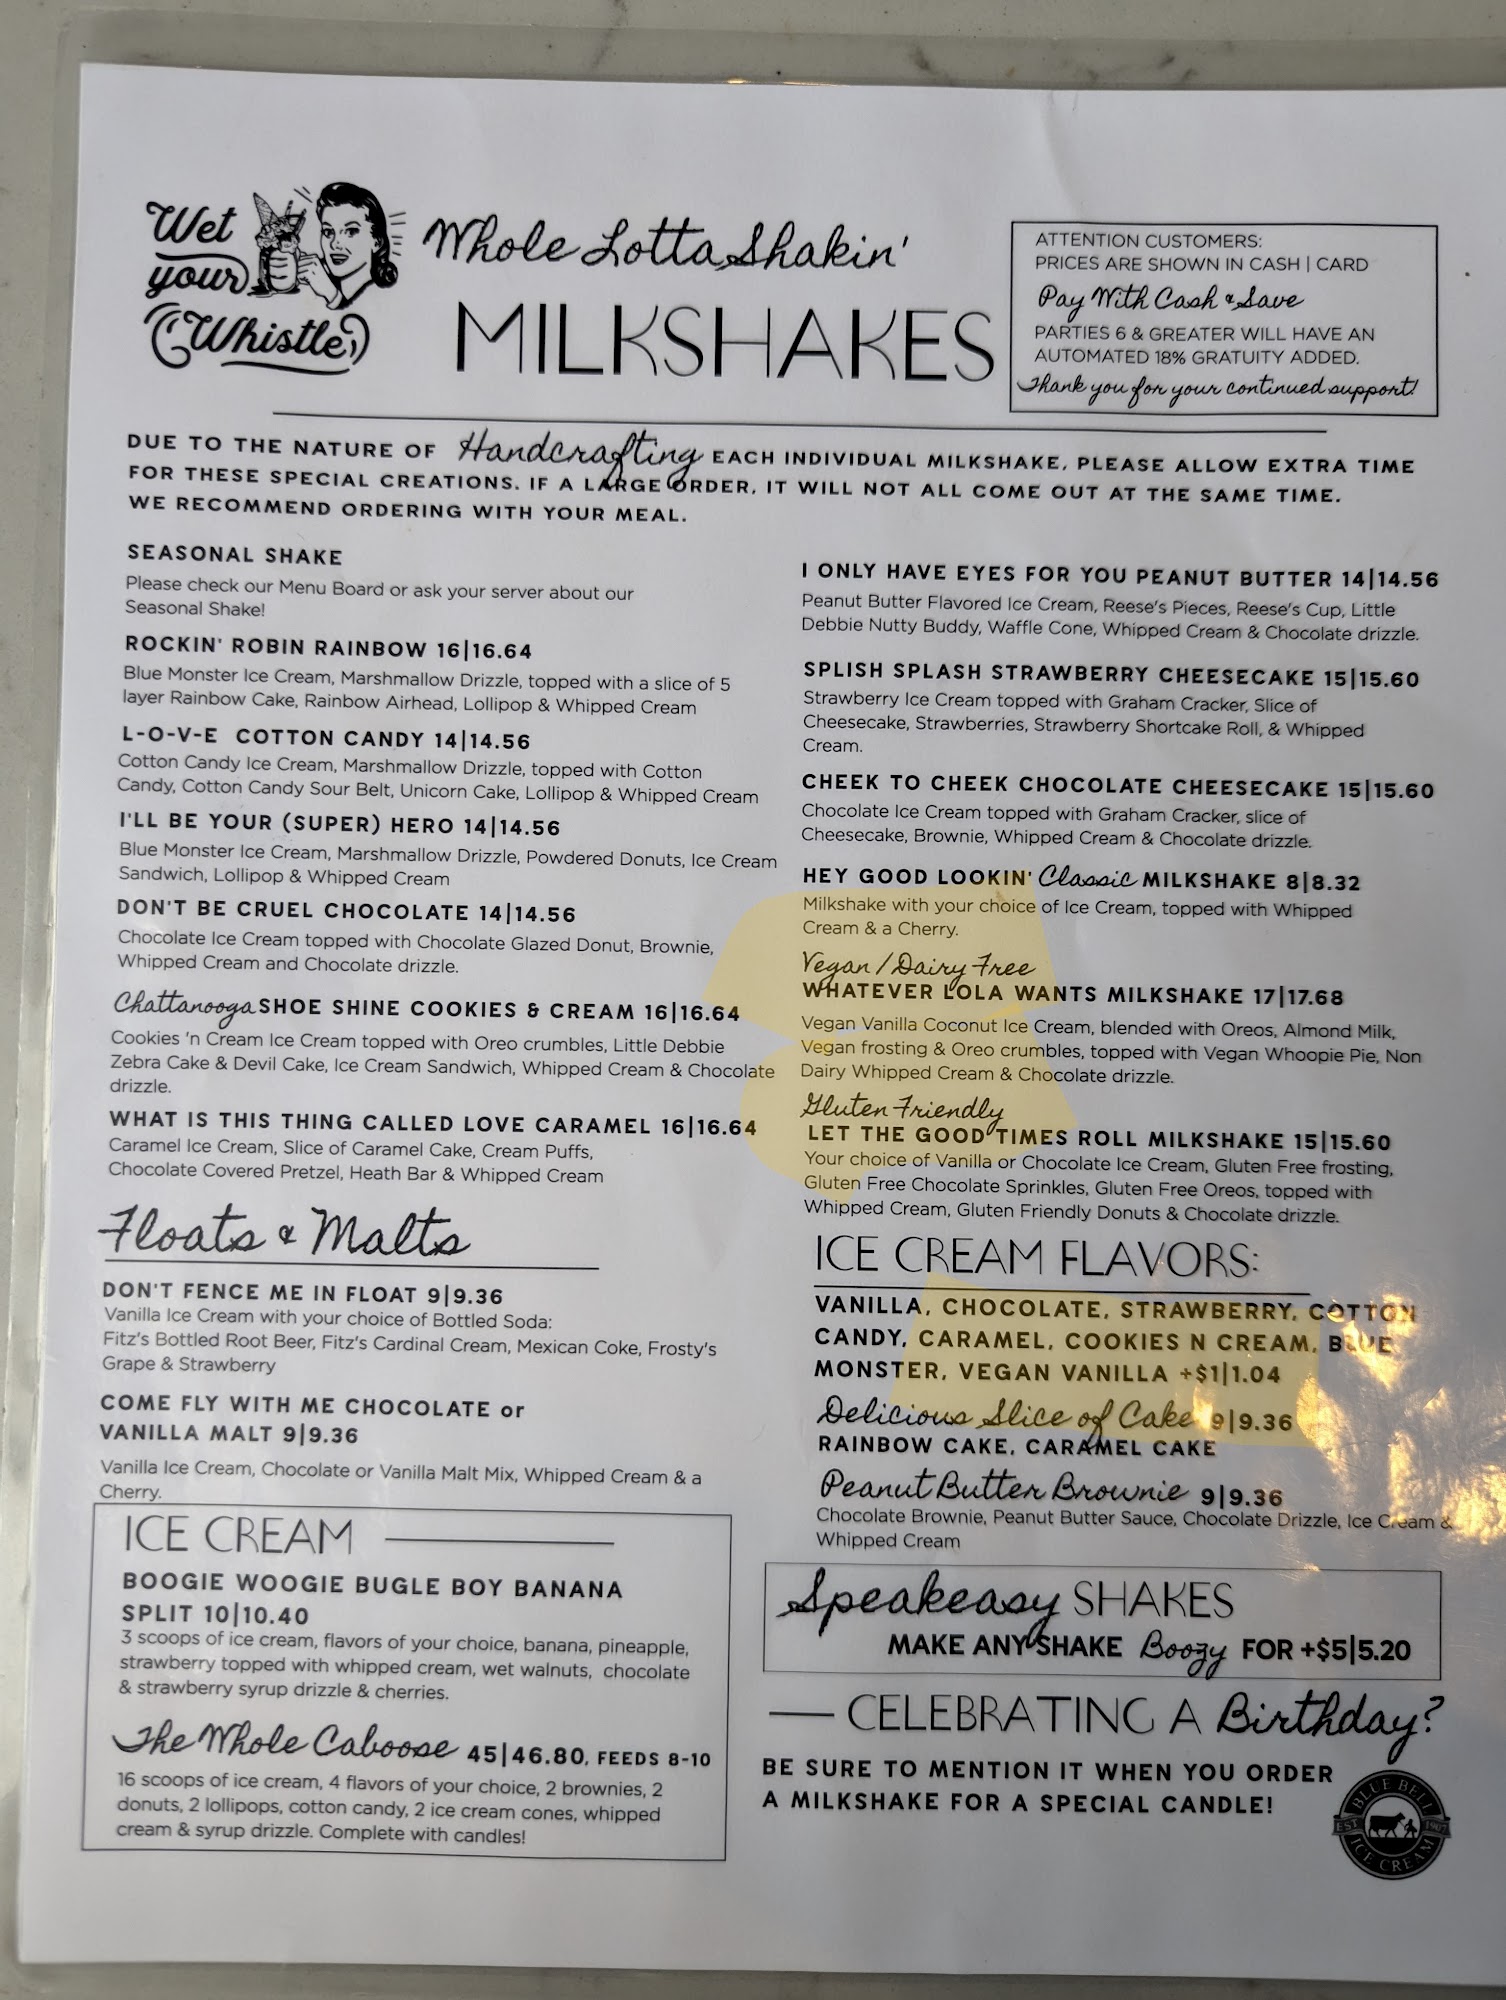 Wet
your
Whistle
Whole Lotta Shakin'
MILKSHAKES
ATTENTION CUSTOMERS:
PRICES ARE SHOWN IN CASH | CARD
Pay With Cash & Save
PARTIES 6 & GREATER WILL HAVE AN
AUTOMATED 18% GRATUITY ADDED.
Thank you for your continued support!
DUE TO THE NATURE OF Handcrafting EACH INDIVIDUAL MILKSHAKE, PLEASE ALLOW EXTRA TIME
FOR THESE SPECIAL CREATIONS. IF A LARGE ORDER, IT WILL NOT ALL COME OUT AT THE SAME TIME.
WE RECOMMEND ORDERING WITH YOUR MEAL.
SEASONAL SHAKE
Please check our Menu Board or ask your server about our
Seasonal Shake!
ROCKIN' ROBIN RAINBOW 16|16.64
Blue Monster Ice Cream, Marshmallow Drizzle, topped with a slice of 5
layer Rainbow Cake, Rainbow Airhead, Lollipop & Whipped Cream
L-O-V-E COTTON CANDY 14|14.56
Cotton Candy Ice Cream, Marshmallow Drizzle, topped with Cotton
Candy, Cotton Candy Sour Belt, Unicorn Cake, Lollipop & Whipped Cream
I'LL BE YOUR (SUPER) HERO 14|14.56
Blue Monster Ice Cream, Marshmallow Drizzle, Powdered Donuts, Ice Cream
Sandwich, Lollipop & Whipped Cream
DON'T BE CRUEL CHOCOLATE 14|14.56
Chocolate Ice Cream topped with Chocolate Glazed Donut, Brownie,
Whipped Cream and Chocolate drizzle.
Chattanooga SHOE SHINE COOKIES & CREAM 16|16.64
Cookies 'n Cream Ice Cream topped with Oreo crumbles, Little Debbie
Zebra Cake & Devil Cake, Ice Cream Sandwich, Whipped Cream & Chocolate
drizzle.
WHAT IS THIS THING CALLED LOVE CARAMEL 16|16.64
Caramel Ice Cream, Slice of Caramel Cake, Cream Puffs,
Chocolate Covered Pretzel, Heath Bar & Whipped Cream
Floats & Malts
DON'T FENCE ME IN FLOAT 9|9.36
Vanilla Ice Cream with your choice of Bottled Soda:
Fitz's Bottled Root Beer, Fitz's Cardinal Cream, Mexican Coke, Frosty's
Grape & Strawberry
COME FLY WITH ME CHOCOLATE or
VANILLA MALT 9|9.36
Vanilla Ice Cream, Chocolate or Vanilla Malt Mix, Whipped Cream & a
Cherry.
ICE CREAM
BOOGIE WOOGIE BUGLE BOY BANANA
SPLIT 10|10.40
3 scoops of ice cream, flavors of your choice, banana, pineapple,
strawberry topped with whipped cream, wet walnuts, chocolate
& strawberry syrup drizzle & cherries.
The Whole Caboose 45|46.80, FEEDS 8-10
16 scoops of ice cream, 4 flavors of your choice, 2 brownies, 2
donuts, 2 lollipops, cotton candy, 2 ice cream cones, whipped
cream & syrup drizzle. Complete with candles!
I ONLY HAVE EYES FOR YOU PEANUT BUTTER 14|14.56
Peanut Butter Flavored Ice Cream, Reese's Pieces, Reese's Cup, Little
Debbie Nutty Buddy, Waffle Cone, Whipped Cream & Chocolate drizzle.
SPLISH SPLASH STRAWBERRY CHEESECAKE 15|15.60
Strawberry Ice Cream topped with Graham Cracker, Slice of
Cheesecake, Strawberries, Strawberry Shortcake Roll, & Whipped
Cream.
CHEEK TO CHEEK CHOCOLATE CHEESECAKE 15|15.60
Chocolate Ice Cream topped with Graham Cracker, slice of
Cheesecake, Brownie, Whipped Cream & Chocolate drizzle.
HEY GOOD LOOKIN' Classic MILKSHAKE 8|8.32
Milkshake with your choice of Ice Cream, topped with Whipped
Cream & a Cherry.
Vegan/Dairy Free
WHATEVER LOLA WANTS MILKSHAKE 17|17.68
Vegan Vanilla Coconut Ice Cream, blended with Oreos, Almond Milk,
Vegan frosting & Oreo crumbles, topped with Vegan Whoopie Pie, Non
Dairy Whipped Cream & Chocolate drizzle.
Gluten Friendly
LET THE GOOD TIMES ROLL MILKSHAKE 15|15.60
Your choice of Vanilla or Chocolate Ice Cream, Gluten Free frosting,
Gluten Free Chocolate Sprinkles, Gluten Free Oreos, topped with
Whipped Cream, Gluten Friendly Donuts & Chocolate drizzle.
ICE CREAM FLAVORS:
VANILLA, CHOCOLATE, STRAWBERRY, COTTON
CANDY, CARAMEL, COOKIES N CREAM, BLUE
MONSTER, VEGAN VANILLA +$1|1.04
Delicious Slice of Cake 9|9.36
RAINBOW CAKE, CARAMEL CAKE
Peanut Butter Brownie 9|9.36
Chocolate Brownie, Peanut Butter Sauce, Chocolate Drizzle, Ice Cream &
Whipped Cream
Speakeasy SHAKES
MAKE ANY SHAKE Boozy FOR +$5|5.20
CELEBRATING A Birthday?
BE SURE TO MENTION IT WHEN YOU ORDER
A MILKSHAKE FOR A SPECIAL CANDLE!
BLUE BELL
EST 1907
ICE CREAM